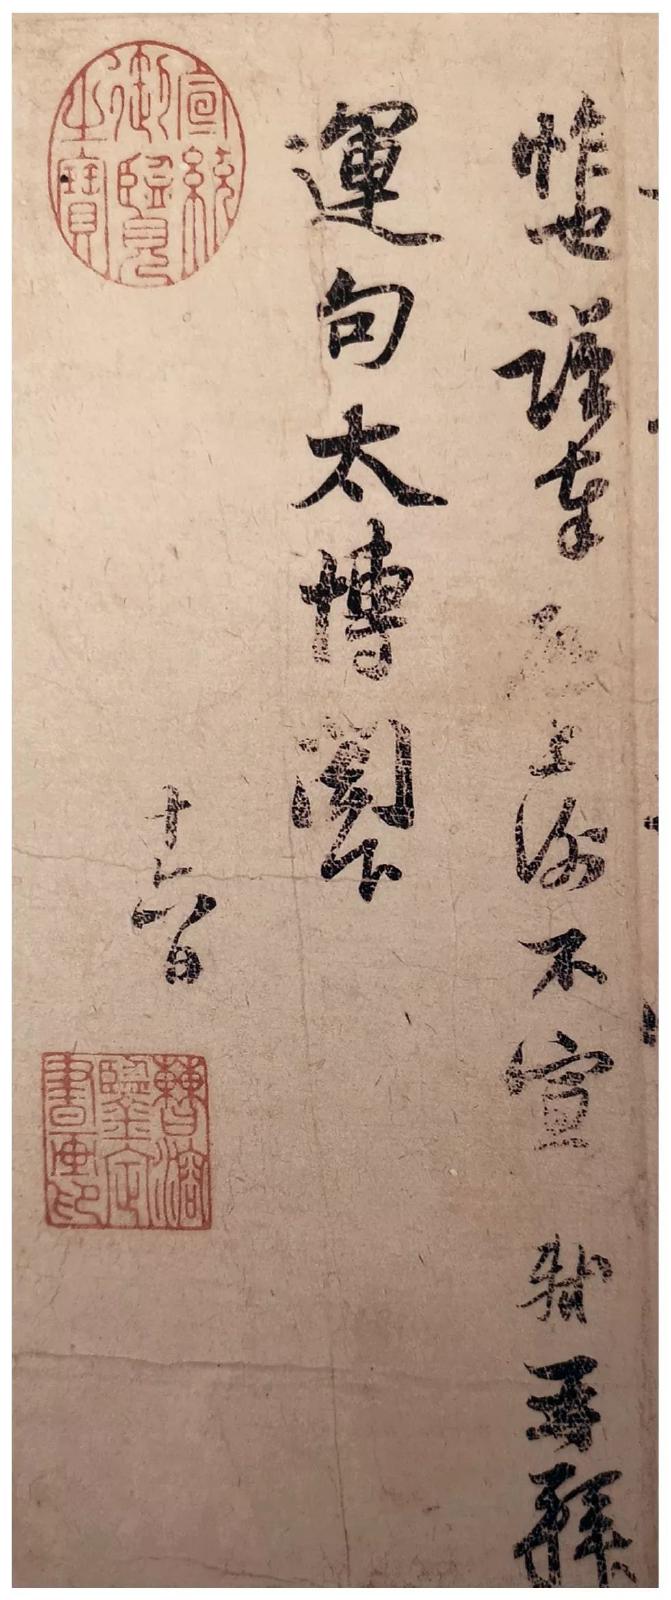 怍也謹奉啟上謝不宣 軾再拜
運句太博閣下
十六日
宣統御覽之寶
曹溶鑒定書畫印